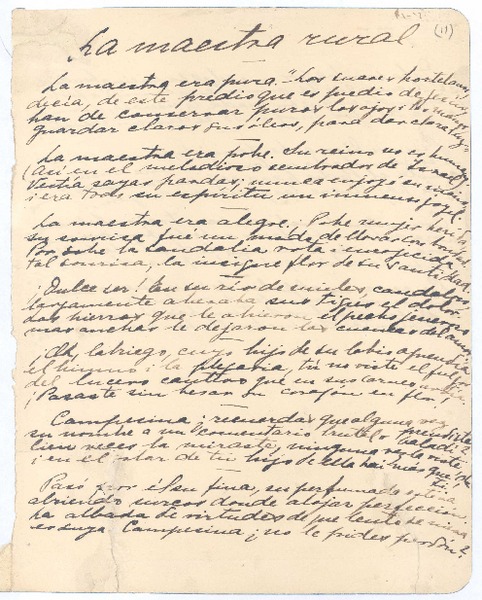 (11)
La maestra rural
La maestra era pura. "Los suaves hortelanos,
decía, de este predio que es predio de Jesús
han de conservar puros los ojos i las manos
guardar claros sus óleos, para dar clara luz"
La maestra era pobre. Su reino no es humano
(Así en el melodioso sembrador de Israel)
Vestía sayas pardas; nunca enjoyó su mano
i era todo su espíritu un inmenso joyel
La maestra era alegre. Pobre mujer herida
su sonrisa fué un modo de llorar con bondad
Por sobre la sandalia rota i enrojecida
tal sonrisa, la insigne flor de su santidad.
¡Dulce ser! En su río de mieles, caudaloso
largamente abrevaba sus tigres el dolor.
Los hierros que le abrieron el pecho generoso
mas anchas le dejaron las cuencas del amor.
¡Oh, labriego, cuyo hijo de su labio aprendía
el himno i la plegaria, tú no viste el fulgor
del lucero cautivo que en sus carnes ardía
¡Pasaste sin besar su corazón en flor!
Campesina ¿recuerdas que alguna vez prendiste
su nombre a un comentario brutal o baladí?
Cien veces la miraste, ninguna vez la viste
i en el solar de tu hijo de ella hai más que de ti
Pasó por él su fina, su perfumada esteva
abriendo surcos donde alojar perfección.
La albada de virtudes de que lento se nieva
es suya. Campesina ¿no le pides perdón?